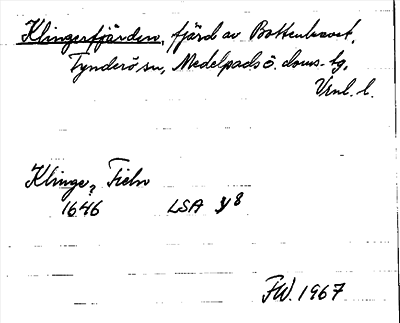 Klingerfjärden, fjärd av Bottenhavet,
Tynderö sn, Medelpads ö. doms-tg,
Vrnl. l.
Klinge, Fieln
1646 LSA y8
FW. 1967